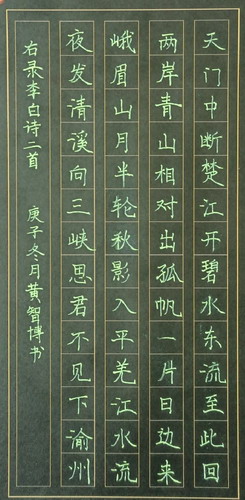 天门中断楚江开碧水东流至此回
两岸青山相对出孤帆一片日边来
峨眉山月半轮秋影入平羌江水流
夜发清溪向三峡思君不见下渝州
右录李白诗二首 庚子冬月黄智博书